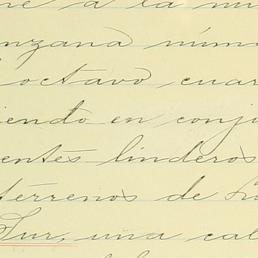 a la
nzana núme
octavo cuar
iendo en conju
entes linderos
terrenos de
Sur, una cal